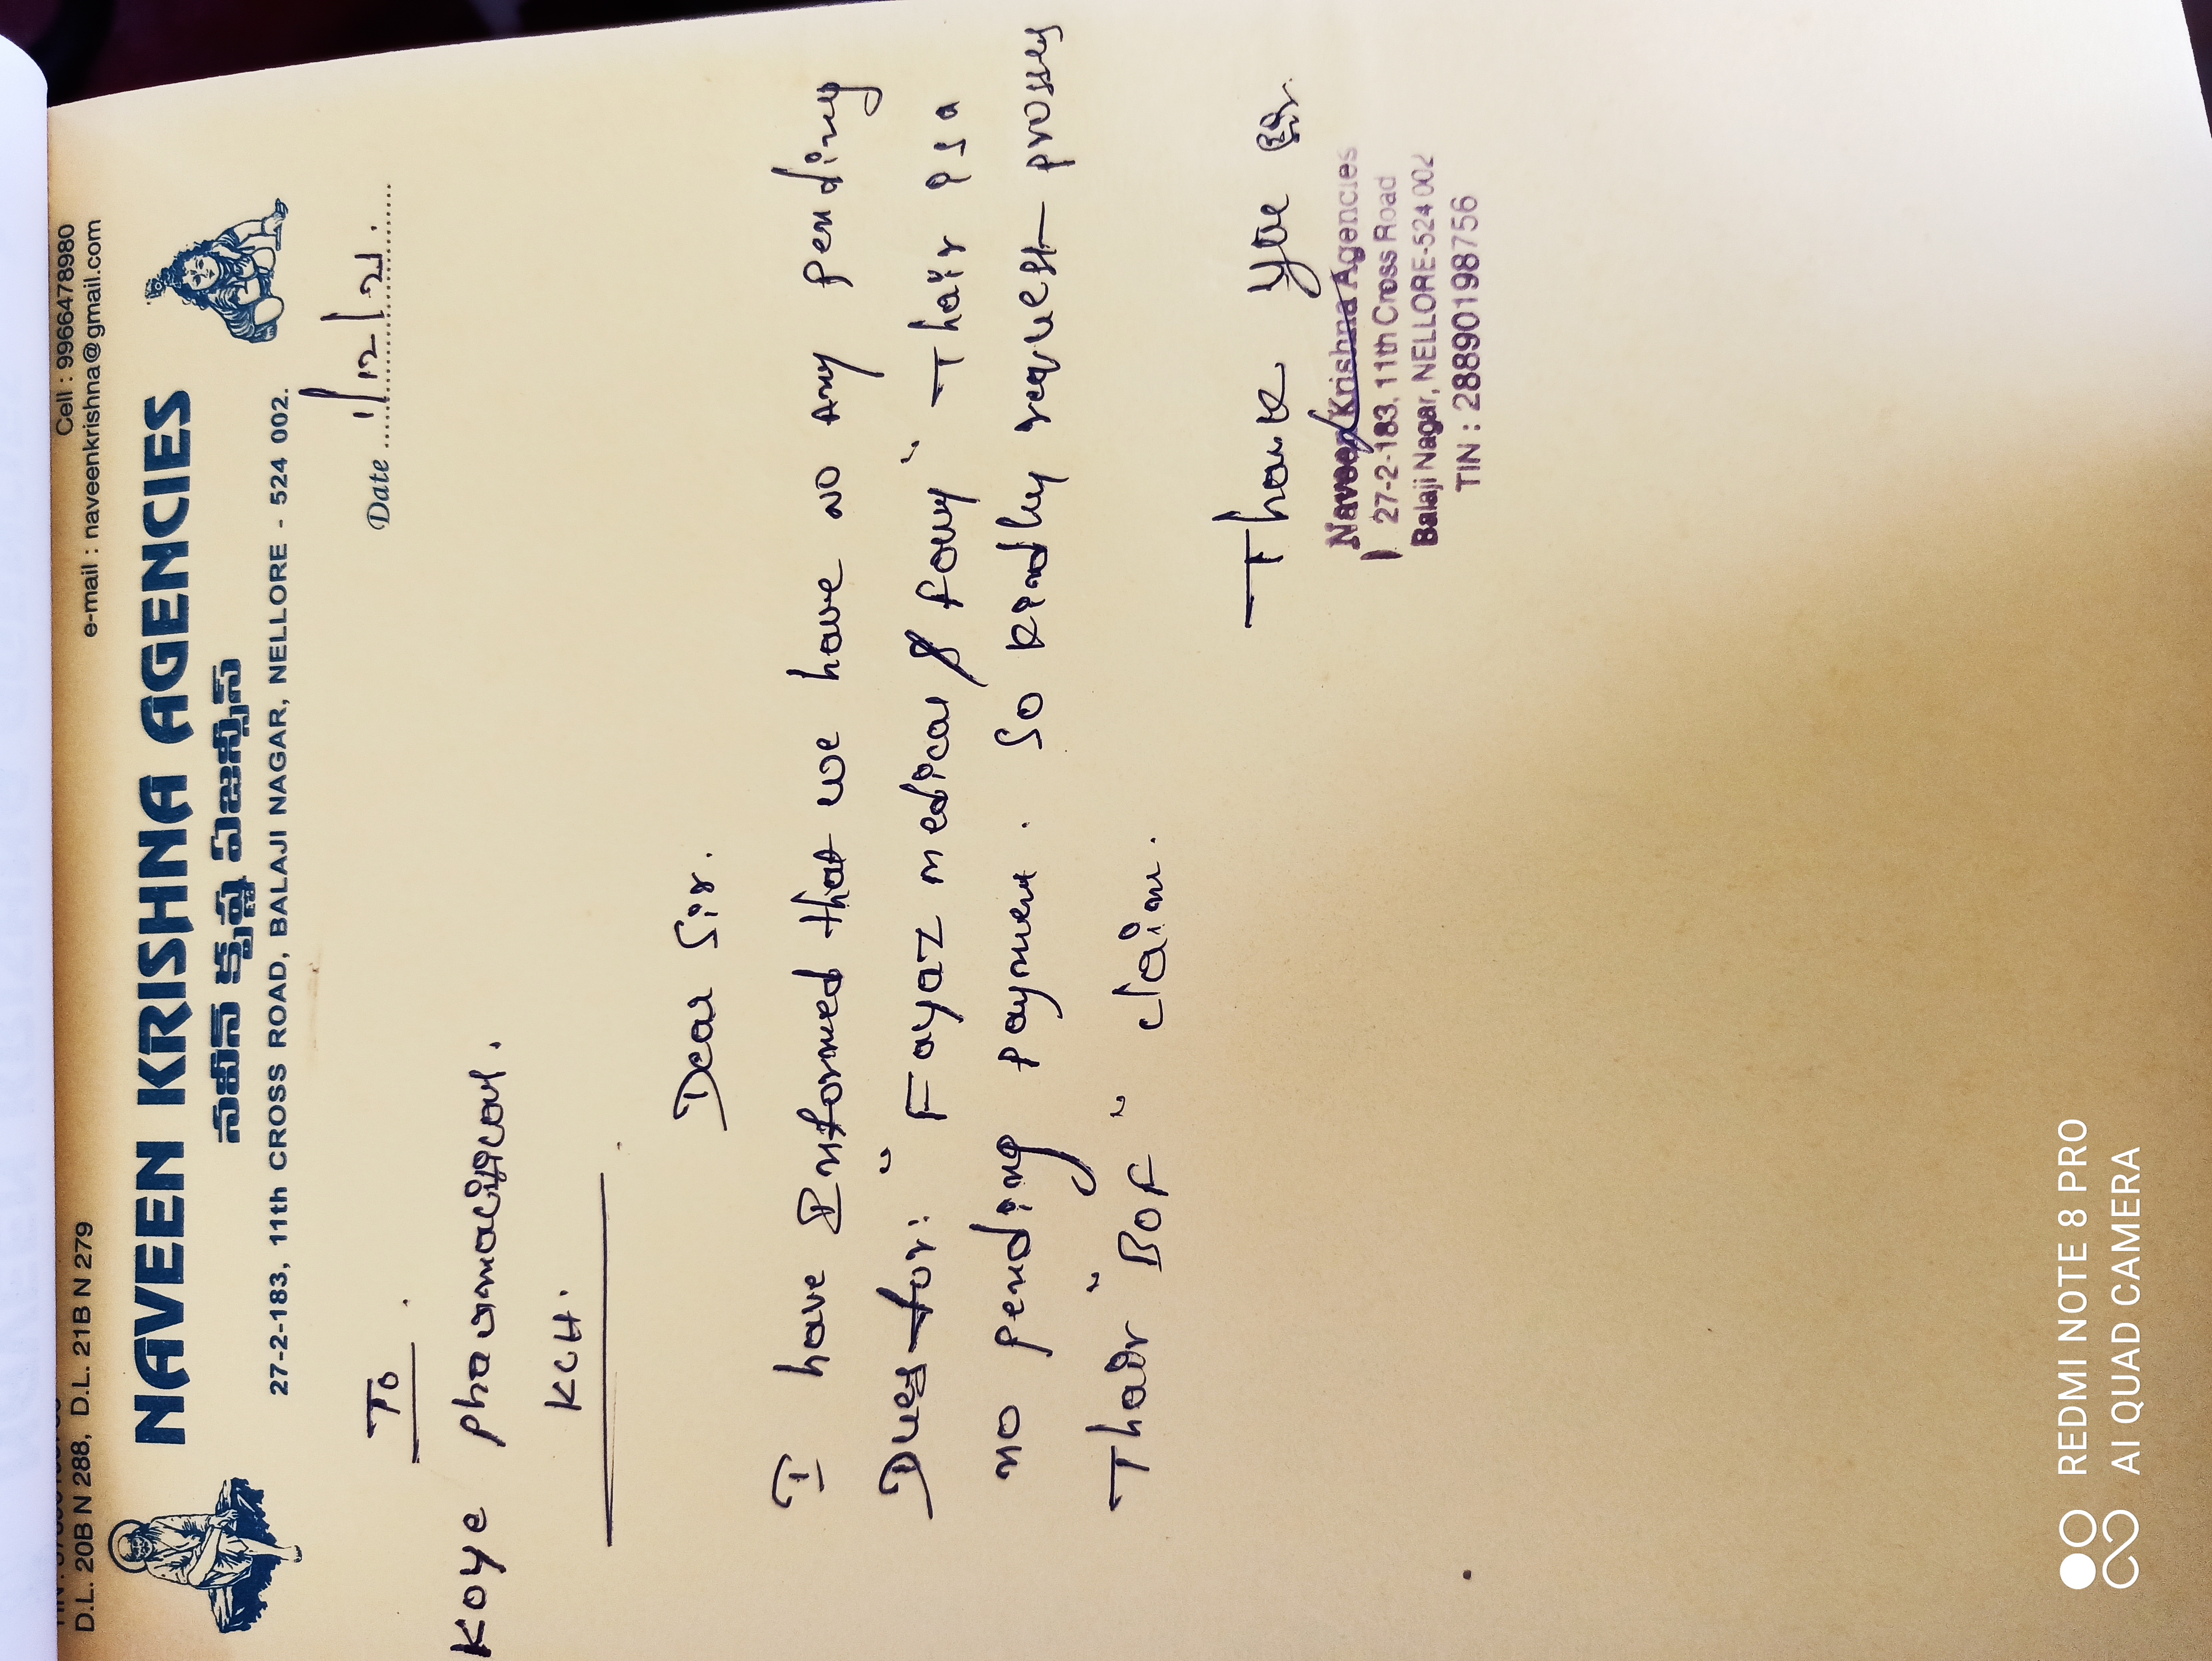 D.L. 20B N 288, D.L. 21B N 279
Cell : 9966478980
e-mail : naveenkrishna@gmail.com
NAVEEN KRISHNA AGENCIES
నవీన్ క్రిష్ణ ఏజన్సీస్
27-2-183, 11th CROSS ROAD, BALAJI NAGAR, NELLORE - 524 002.
Date 1/12/21.
To.
Koye pharmaceutical.
KCH.
Dear Sir.
I have Informed that we have no any pending
Dues for: " Fayaz medical & fancy " Thair Is a
no pending payment. So kindly request prosses
Thair " BOF " claim.
Thank you Sir.
Naveen Krishna Agencies
27-2-183, 11th Cross Road
Balaji Nagar, NELLORE-524 002
TIN : 28890198756
REDMI NOTE 8 PRO
AI QUAD CAMERA